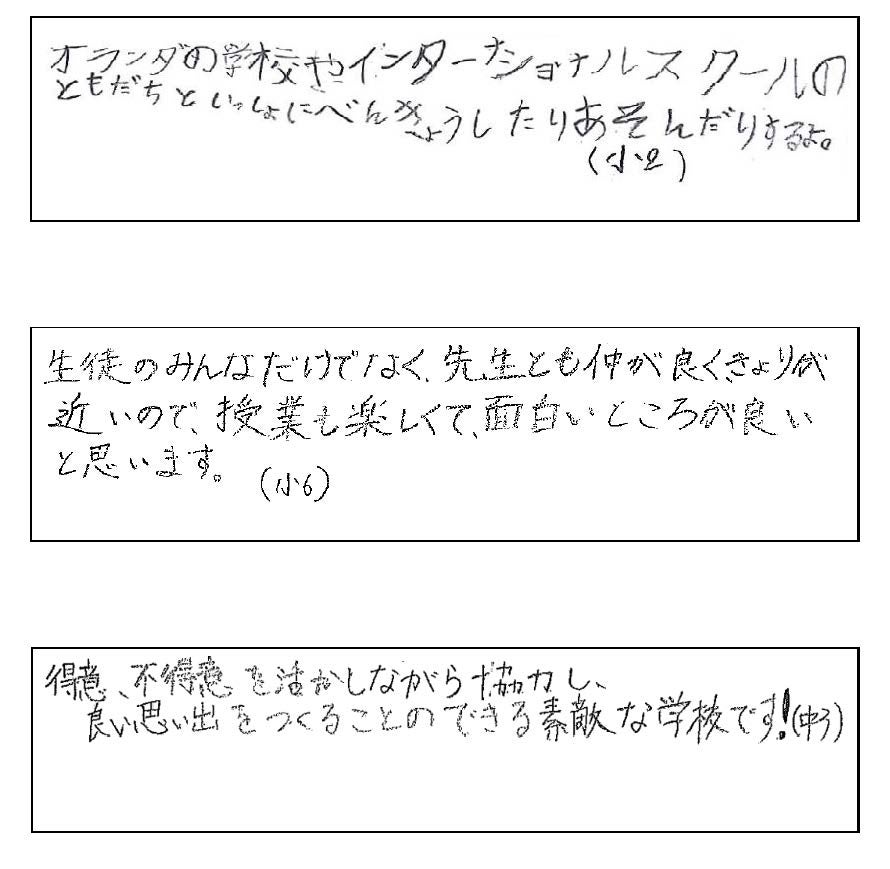 オランダの学校やインターナショナルスクールの
ともだちといっしょにべんきょうしたりあそんだりするよ。
(小2)
生徒のみんなだけでなく、先生とも仲が良くきょりが
近いので、授業も楽しくて、面白いところが良い
と思います。(小6)
得意、不得意を活かしながら協力し、
良い思い出をつくることのできる素敵な学校です!(中3)